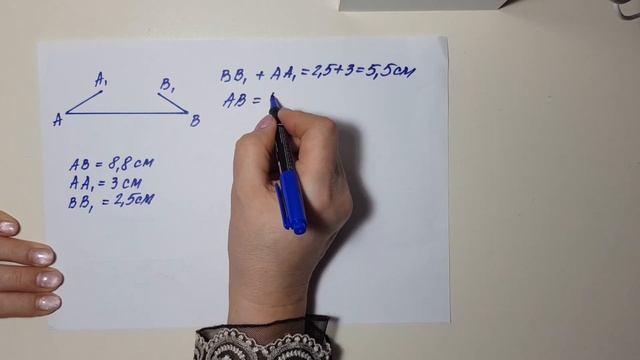 A₁
B₁
A
B
BB₁ + AA₁ = 2,5+3 = 5,5 см
AB =
AB = 8,8 см
AA₁ = 3 см
BB₁ = 2,5 см